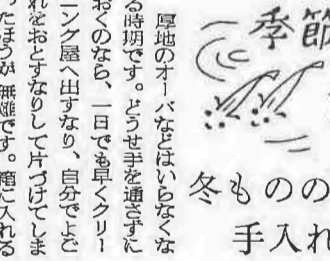 季節
冬ものの
手入れ
厚地のオーバなどはいらなくな
る時期です。どうせ手を通さずに
おくのなら、一日でも早くクリー
ニング屋へ出すなり、自分でよご
れをおとすなりして片づけてしま
ったほうが無難です。箱に入れる